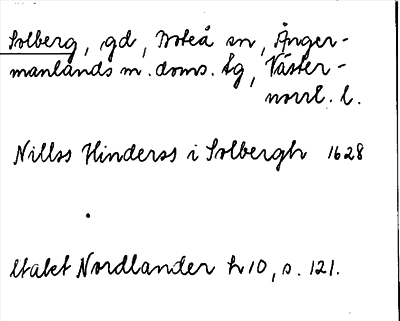 Solberg, gd, Boteå sn, Ånger-
manlands m. doms. tg, Väster-
norrl. l.
Nillss Hinderss i Solbergh 1628
Utaket Nordlander h 10, s. 121.